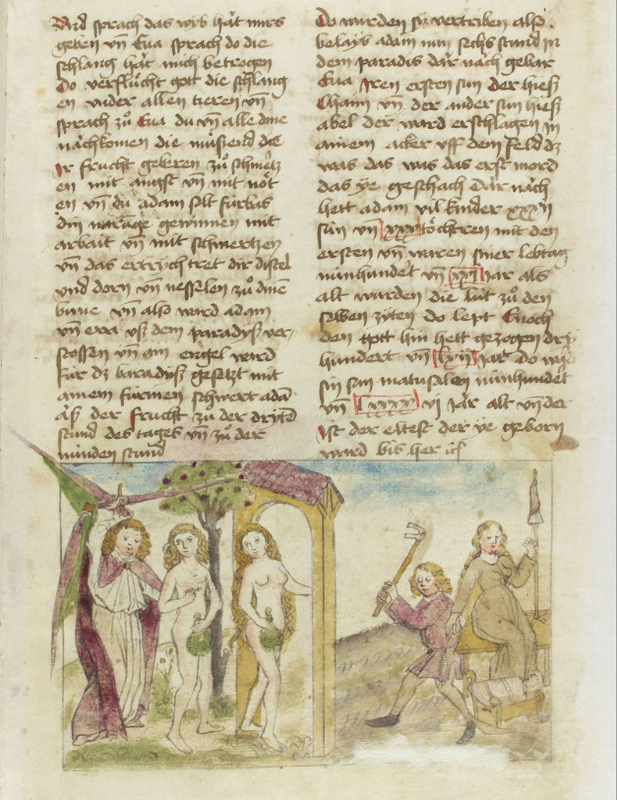 Vnd sprach das wyb hăt mirs
geben vn̄ Eua sprach do die
schlang hăt mich betrogen
Do verflůcht gott die schlang
en vnder allen tieren vn̄
sprach zů Eua du vn̄ alle dine
năchkomen die můssend die
Ir frucht geberen zů schmertz
en mit angst vn̄ mit nŏt
en vn̄ du adam solt fürbas
din narăge gewinnen mit
arbait vn̄ mit schmertzen
vn̄ das ertrÿch tret dir distel
vnd dorn vn̄ nesselen zů dinē
buwe vn̄ also ward adam
vn̄ eva vss dem paradÿss ver
stossen vn̄ ain engel ward
für dz baradÿss gesetzt mit
ainem fürinen schwert adā
ăss der frucht zů der drytē
stund des tages vn̄ zů der
nünden stund
Do wurden sÿ vertriben also
belayb adam nun sechs stund in
dem paradis dar năch gebar
Eua Iren ersten sun der hiess
Chain vn̄ der ander sun hiess
abel der ward erschlagen in
ainem acker vff dem feld dz
was das was das erst mord
das ÿe geschach Dar năch
hett adam vil kinder xxxij
sün vn̄ xxx tŏchtren mit den
ersten vn̄ waren siner lebtag
nünhundet vn̄ xxx jar als
alt wurden die lüt zů den
selben ziten do lept Enoch
den gott hin hett gezogen dry
hundert vn̄ lxv jar do
sin sun matusalen nünhundet
vn̄ lxiiij vj jăr alt vn̄ der
Ist der eltest der ÿe geborn
ward bis her uf